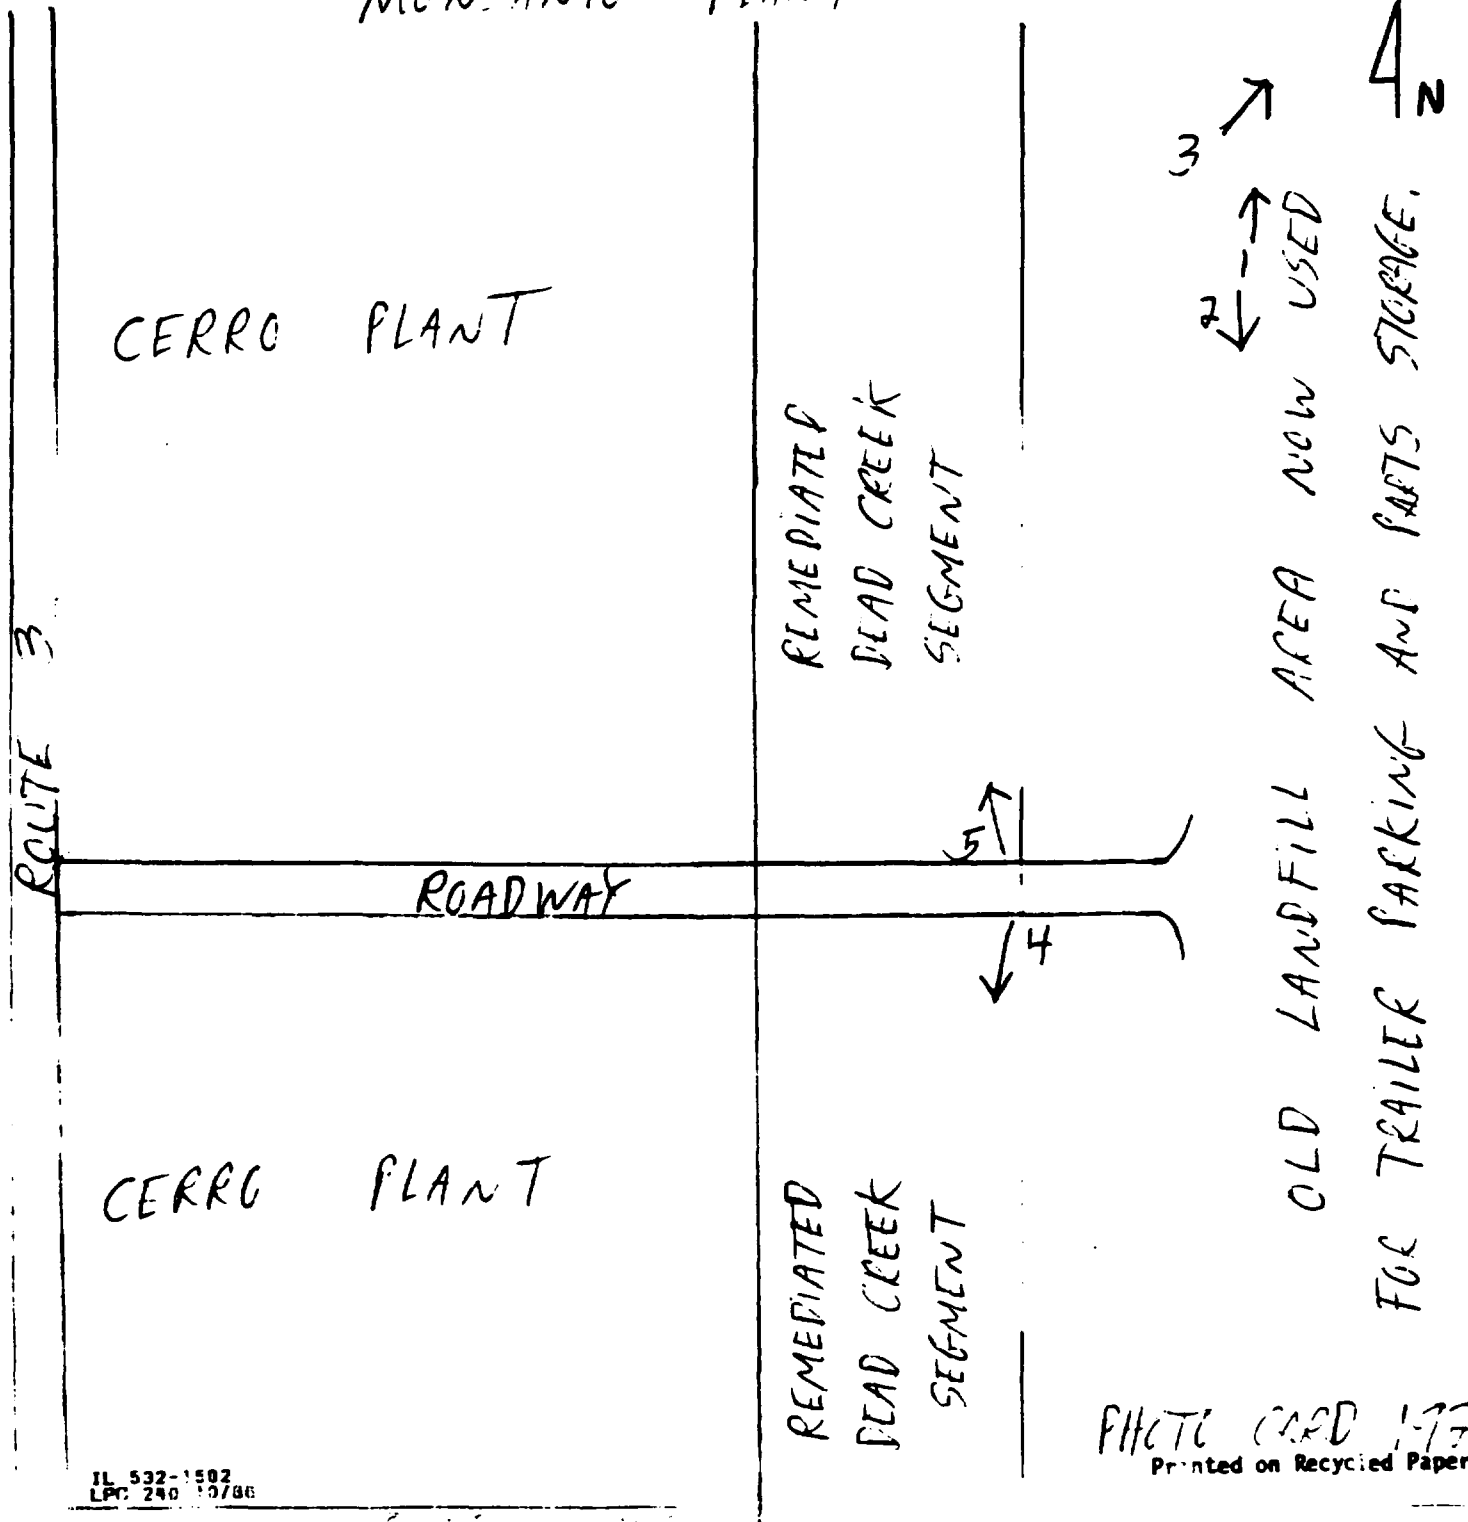 PLANT
N
3
2
CERRO PLANT
REMEDIATED
DEAD CREEK
SEGMENT
OLD LANDFILL AREA NOW USED
FOR TRAILER PARKING AND PARTS STORAGE.
ROUTE 3
5
ROADWAY
4
CERRO PLANT
REMEDIATED
DEAD CREEK
SEGMENT
PHOTO CARD
Printed on Recycled Paper
IL 532-1502
LPC 240 10/86